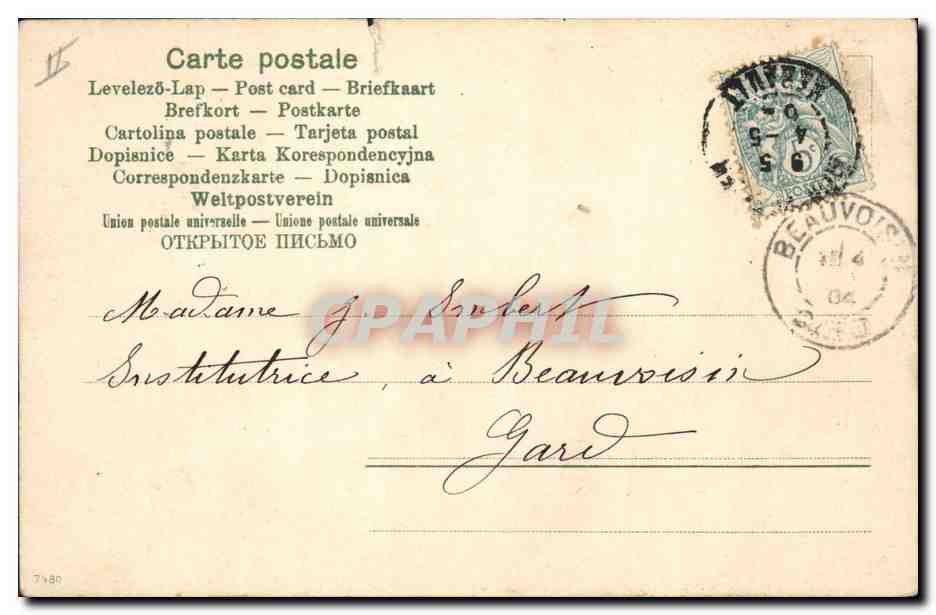 Carte postale
Levelező-Lap — Post card — Briefkaart
Brefkort — Postkarte
Cartolina postale — Tarjeta postal
Dopisnice — Karta Korespondencyjna
Correspondenzkarte — Dopisnica
Weltpostverein
Union postale universelle — Unione postale universale
ОТКРЫТОЕ ПИСЬМО
5
BEAUVOISIN
4
04
Madame J. Imbert
CPAPHIL
Institutrice, à Beauvoisin
Gard
7480